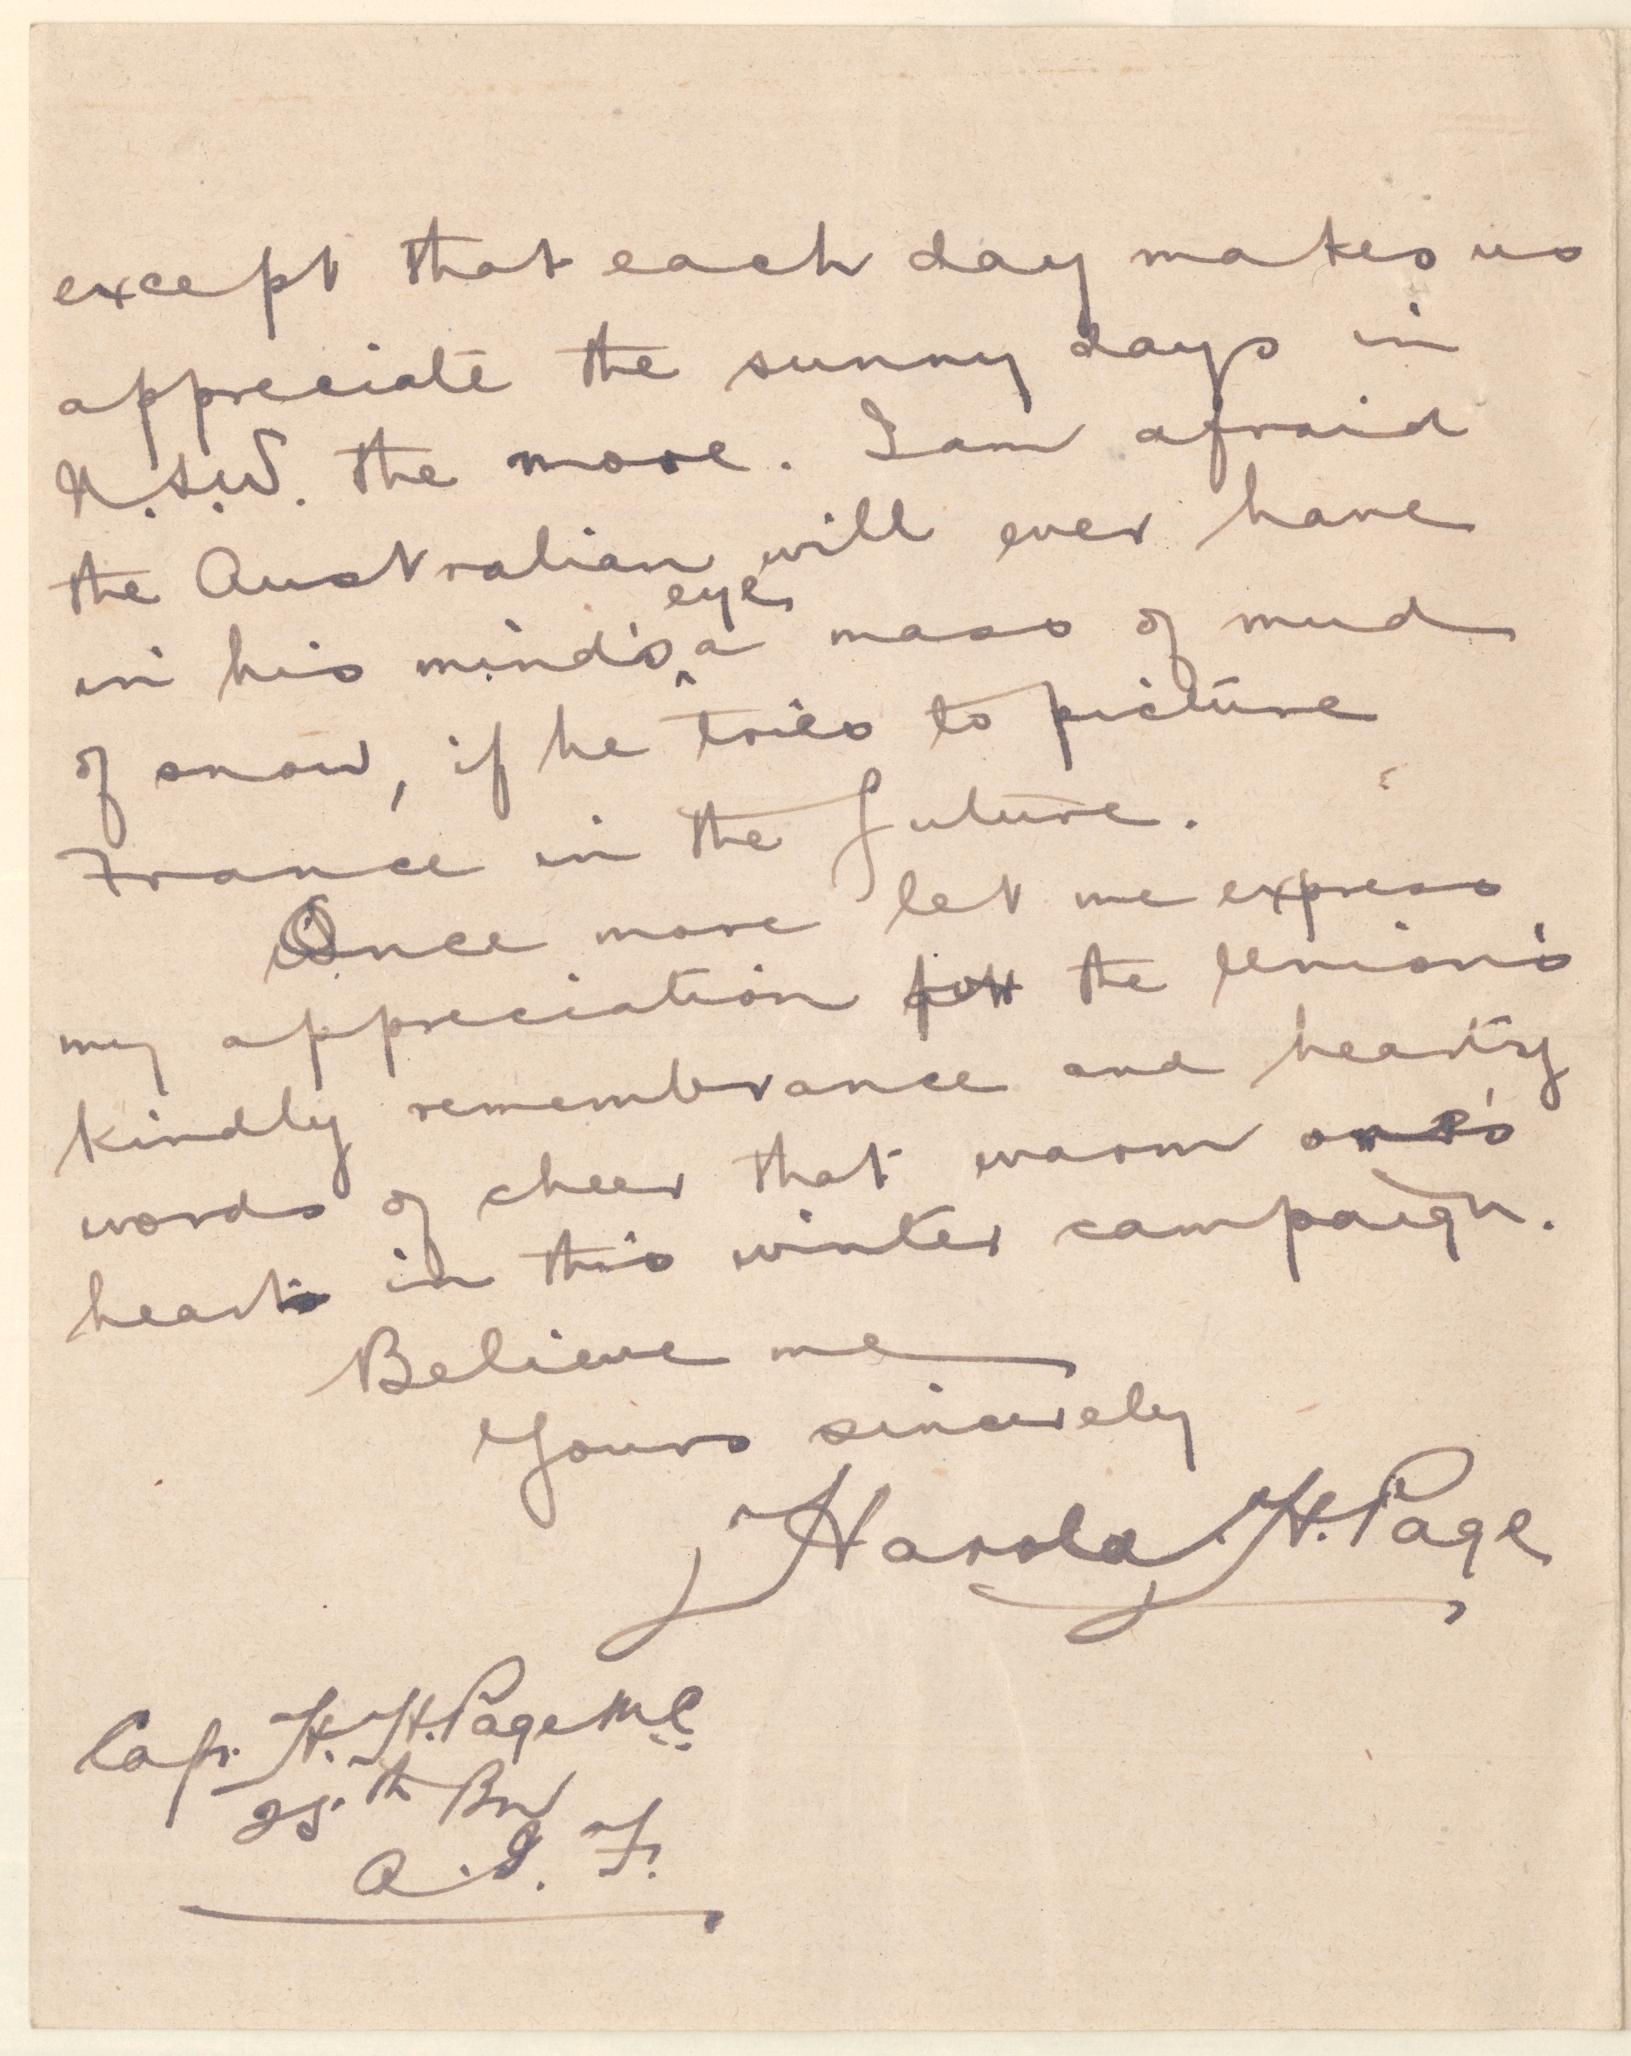 except that each day makes us
appreciate the sunny days in
N.S.W. the more. I am afraid
the Australian will ever have
in his mind's eye a mass of mud
of snow, if he tries to picture
France in the future.
Once more let me express
my appreciation for the Union's
kindly remembrance and hearty
words of cheer that warm one's
heart in this winter campaign.
Believe me
Yours sincerely
Harold H. Page
Capt. H. H. Page M.C.
25th Bn
A. I. F.